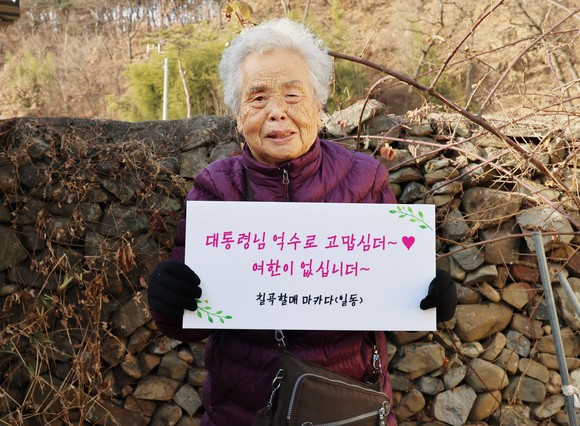 대통령님 억수로 고맙심더~♥
여한이 없심니더~
칠곡할매 마카다(일동)